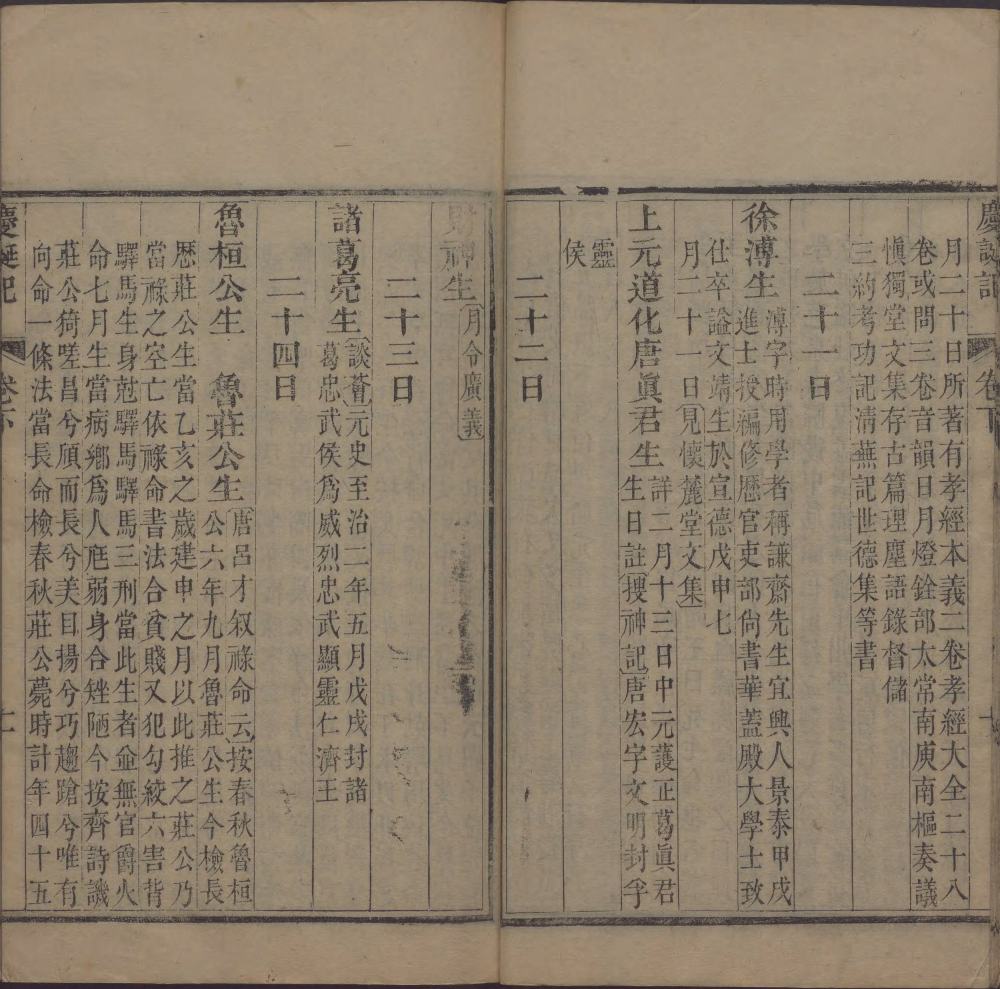 慶誕記 卷下
月二十日所著有孝經本義二卷孝經大全二十八
卷或問三卷音韻日月燈銓部太常南庾南樞奏議
愼獨堂文集存古篇理塵語錄督儲
三約考功記清蕪記世德集等書
二十一日
徐溥生
溥字時用學者稱謙齋先生宜興人景泰甲戌
進士授編修歷官吏部尙書華蓋殿大學士致
仕卒謚文靖生於宣德戊申七
月二十一日見懷麓堂文集
上元道化唐眞君生
詳二月十三日中元護正葛眞君
生日註搜神記唐宏字文明封孚
靈
侯
二十二日
財神生 月令廣義
二十三日
諸葛亮生
談薈元史至治二年五月戊戌封諸
葛忠武侯爲威烈忠武顯靈仁濟王
二十四日
魯桓公生 魯莊公生
唐呂才叙祿命云按春秋魯桓
公六年九月魯莊公生今檢長
歷莊公生當乙亥之歲建申之月以此推之莊公乃
當祿之空亡依祿命書法合貧賤又犯勾絞六害背
驛馬生身尅驛馬驛馬三刑當此生者並無官爵火
命七月生當病鄉爲人尪弱身合矬陋今按齊詩譏
莊公猗嗟昌兮頎而長兮美目揚兮巧趨蹌兮唯有
向命一條法當長命檢春秋莊公薨時計年四十五
慶誕記 卷下 十一